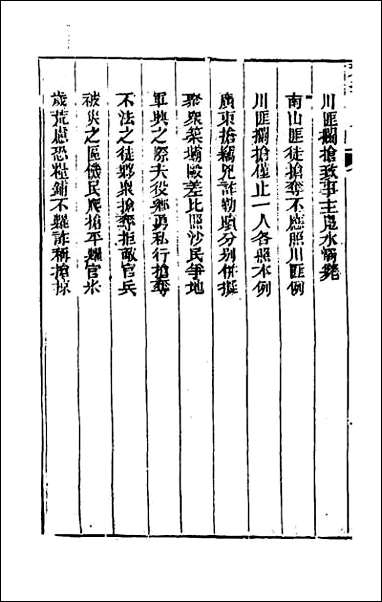 川匪攔搶致事主鳧水溺斃
南山匪徒搶奪不應照川匪例
川匪攔搶僅止一人各照本例
廣東搶竊兇詐勒贖分別併擬
聚眾築壩毆差比照沙民爭地
軍興之際夫役鄉勇私行搶奪
不法之徒夥眾搶奪拒敵官兵
被災之區饑民爬搶平糶官米
歲荒慮恐糧鋪不糶詐稱搶掠